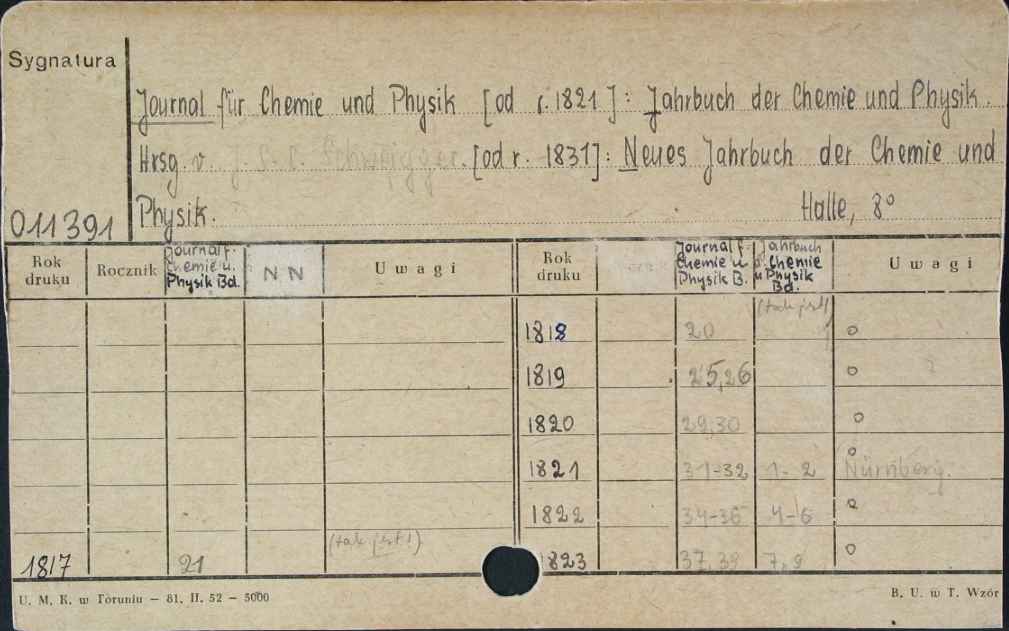 Sygnatura
Journal für Chemie und Physik [od r. 1821]: Jahrbuch der Chemie und Physik.
Hrsg. v. J. S. C. Schweigger. [od r. 1831]: Neues Jahrbuch der Chemie und
011391 Physik. Halle, 8°
Rok druku Rocznik Journal f. Chemie u. Physik Bd. NN Uwagi Rok druku Journal f. Chemie u. Physik B. Jahrbuch d. Chemie u. Physik Bd. Uwagi
(tak jest)
1818 20 o
1819 25,26 o
1820 29,30 o
1821 31-32 1-2 o Nürnberg.
1822 34-36 4-6 o
(tak jest!)
1817 21 1823 37,39 7,9 o
U. M. K. w Toruniu – 81. II. 52 – 5000 B. U. w T. Wzór